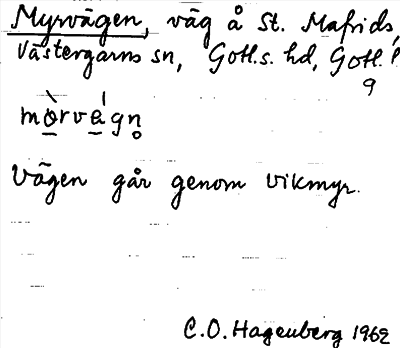 Myrvägen, väg å St. Mafrids,
Västergarns sn, Gotl. s. hd, Gotl. l
9
mòrvágn̥
Vägen går genom Vikmyr.
C. O. Hagenberg 1962